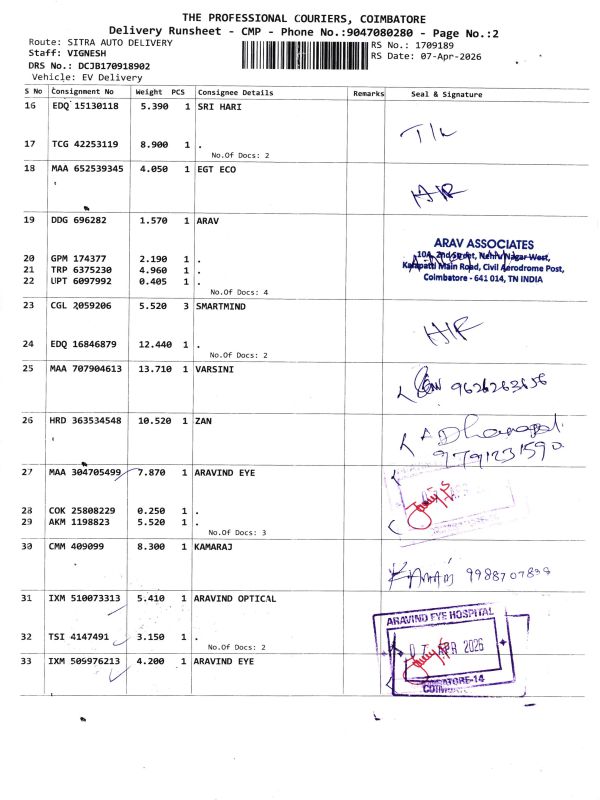 THE PROFESSIONAL COURIERS, COIMBATORE
Delivery Runsheet - CMP - Phone No.:9047080280 - Page No.:2
Route: SITRA AUTO DELIVERY
RS No.: 1709189
Staff: VIGNESH
RS Date: 07-Apr-2026
DRS No.: DCJB170918902
Vehicle: EV Delivery
S No Consignment No Weight PCS Consignee Details Remarks Seal & Signature
16 EDQ 15130118 5.390 1 SRI HARI
17 TCG 42253119 8.900 1 .
No.Of Docs: 2
18 MAA 652539345 4.050 1 EGT ECO
19 DDG 696282 1.570 1 ARAV
ARAV ASSOCIATES
10A, 2nd Street, Nehru Nagar West,
20 GPM 174377 2.190 1 .
Kalapatti Main Road, Civil Aerodrome Post,
21 TRP 6375230 4.960 1 .
Coimbatore - 641 014, TN INDIA
22 UPT 6097992 0.405 1 .
No.Of Docs: 4
23 CGL 2059206 5.520 3 SMARTMIND
24 EDQ 16846879 12.440 1 .
No.Of Docs: 2
25 MAA 707904613 13.710 1 VARSINI
26 HRD 363534548 10.520 1 ZAN
9791231590
27 MAA 304705499 7.870 1 ARAVIND EYE
28 COK 25808229 0.250 1 .
29 AKM 1198823 5.520 1 .
No.Of Docs: 3
30 CMM 409099 8.300 1 KAMARAJ
31 IXM 510073313 5.410 1 ARAVIND OPTICAL
ARAVIND EYE HOSPITAL
32 TSI 4147491 3.150 1 .
07 APR 2026
No.Of Docs: 2
33 IXM 509976213 4.200 1 ARAVIND EYE
COIMBATORE-14